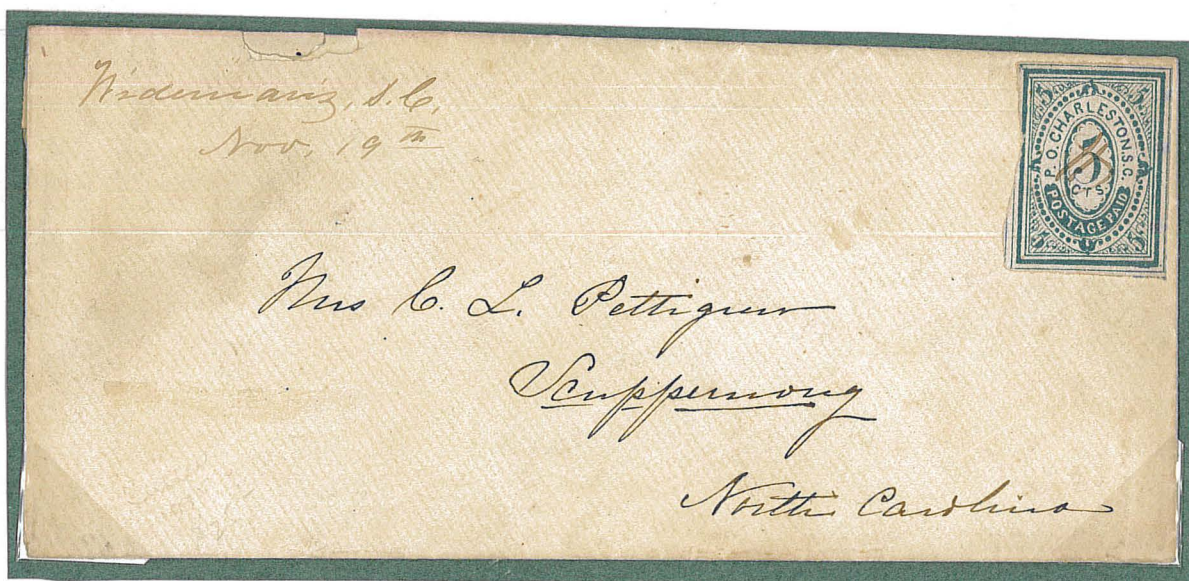 Widemans, S.C.
Nov. 19th
5 5
P.O. CHARLESTON. S.C.
5
CTS.
POSTAGE PAID
5 5
Mrs C. L. Pettigrew
Scuppernong
North Carolina